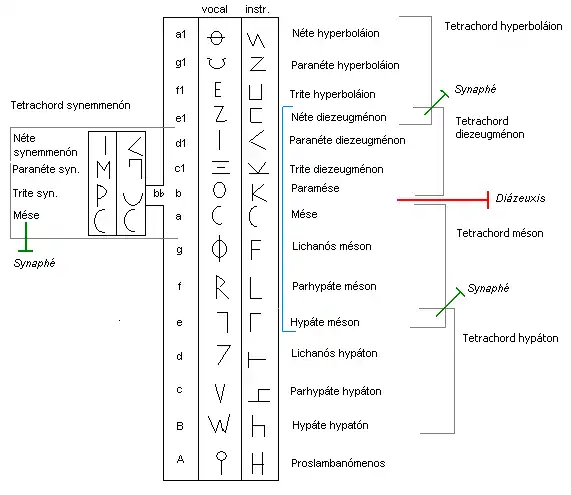 vocal instr.
a1 Néte hyperboláion
g1 Paranéte hyperboláion
f1 Trite hyperboláion
e1 Néte diezeugménon
d1 Paranéte diezeugménon
c1 Trite diezeugménon
b Paramése
a Mése
g Lichanós méson
f Parhypáte méson
e Hypáte méson
d Lichanós hypáton
c Parhypáte hypáton
B Hypáte hypatón
A Proslambanómenos
Tetrachord synemmenón
Néte
synemmenón
Paranéte syn.
Trite syn.
Mése
bb
Synaphé
Tetrachord hyperboláion
Synaphé
Tetrachord
diezeugménon
Diázeuxis
Tetrachord méson
Synaphé
Tetrachord hypáton